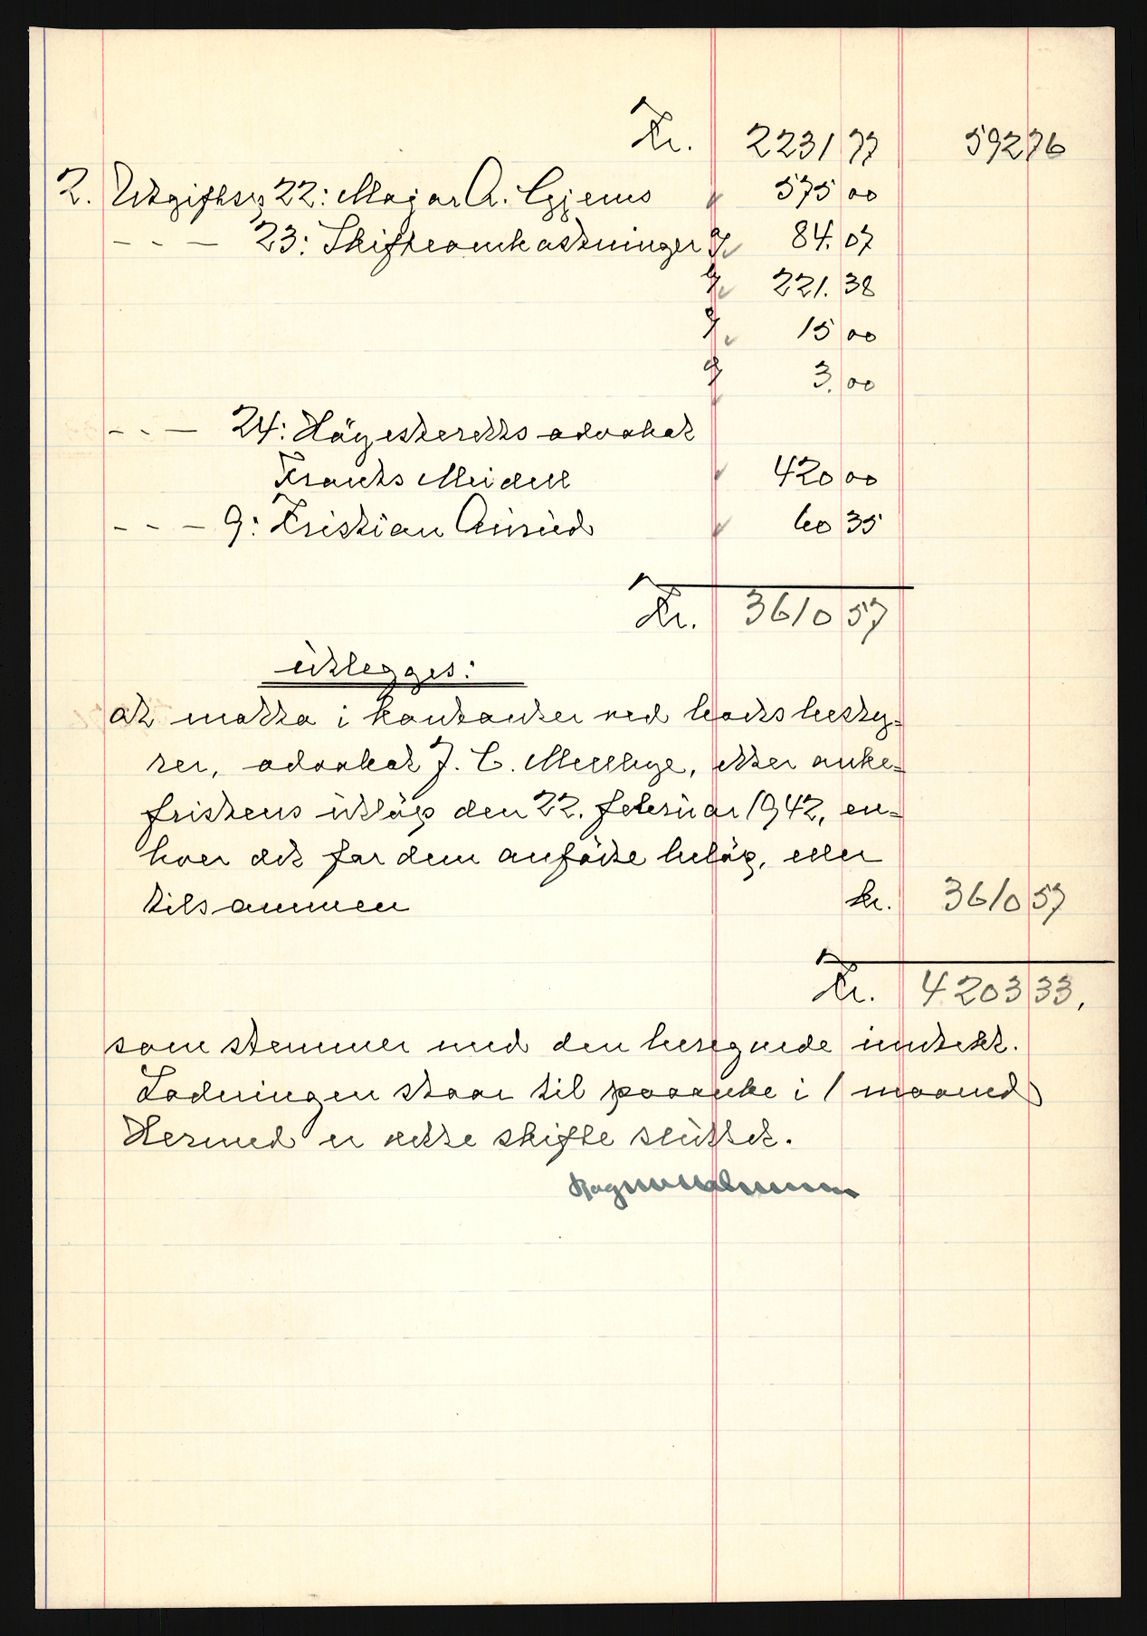 Kr. 2231 77 592 76
2. Utgiftsp 22: Major A. Gjems " 575 00
- " - 23: Skifteomkostninger " 84.07
" 221.38
" 15 00
" 3.00
- " - 24: Höyesteretts advokat
Frants Meidell " 420 00
- " - 9: Kristian " 60 35
Kr. 3610 57
utlegges:
at motta i kontanter ved boets besty-
rer, advokat J. C. Mellbye, etter anke-
fristens utlöp den 22. februar 1942, en-
hver det for dem anförte belöp, eller
tilsammen kr. 3610 57
Kr. 4203 33,
som stemmer med den beregnede inntekt.
Lodningen staar til paaanke i 1 maaned
Hermed er dette skifte sluttet.